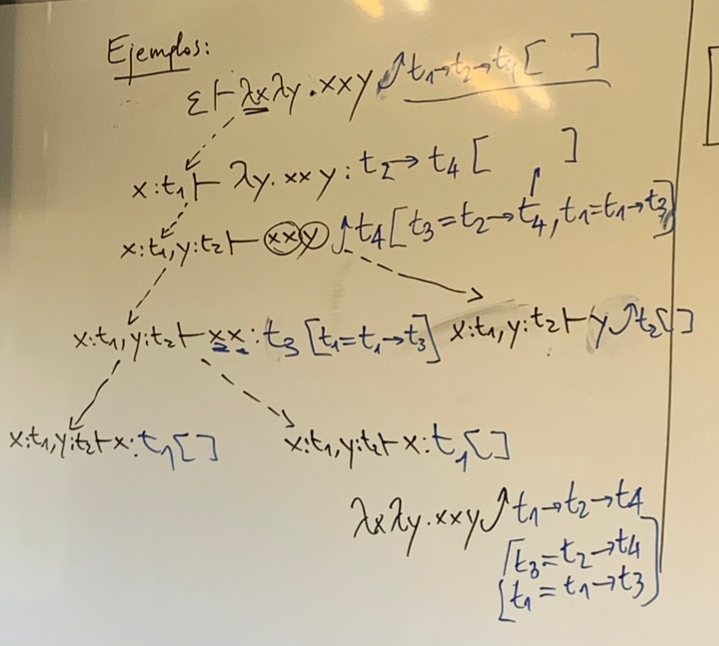 Ejemplos:
ε ⊢ λxλy.xxy ⤴ t₁→t₂→t₄ [ ]
x:t₁ ⊢ λy.xxy : t₂→t₄ [ ]
x:t₁,y:t₂ ⊢ xxy ⤴ t₄ [t₃=t₂→t₄, t₁=t₁→t₃]
x:t₁,y:t₂ ⊢ xx : t₃ [t₁=t₁→t₃] x:t₁,y:t₂ ⊢ y ⤴ t₂ [ ]
x:t₁,y:t₂ ⊢ x : t₁ [ ] x:t₁,y:t₂ ⊢ x : t₁ [ ]
λxλy.xxy ⤴ t₁→t₂→t₄
[t₃=t₂→t₄
t₁=t₁→t₃]